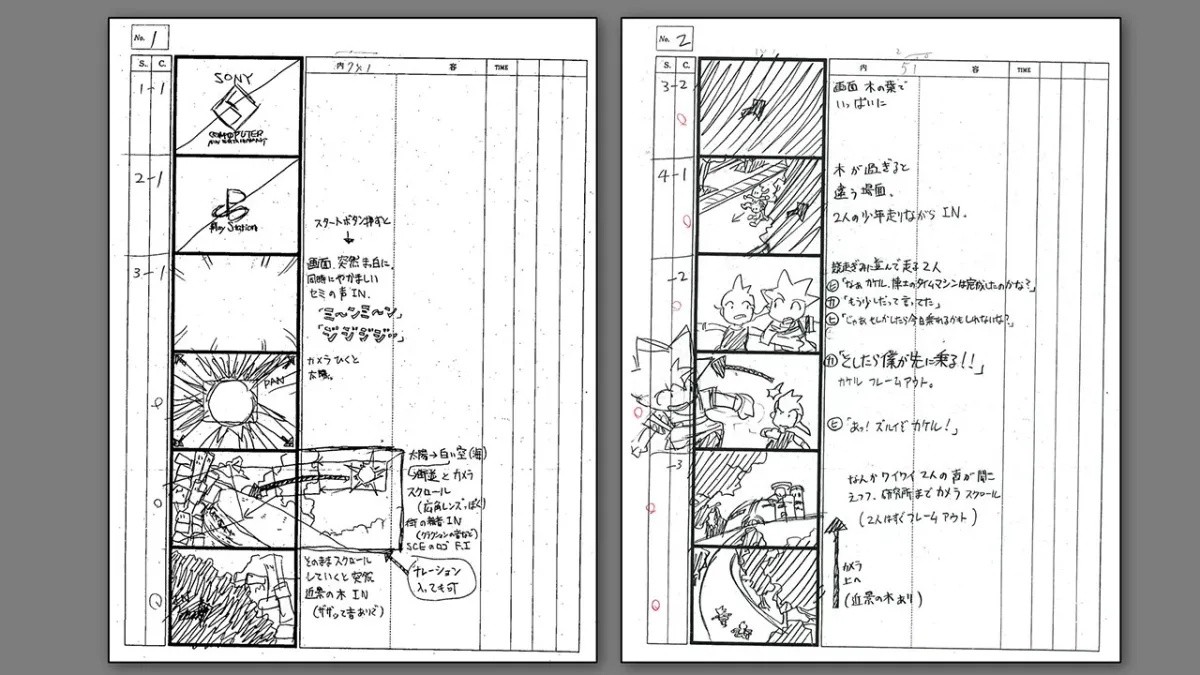 No. 1
S. C. 内 容 TIME
1-1
SONY
COMPUTER
2-1
PlayStation
スタートボタン押すと
3-1
画面、突然ま白に、
同時にやかましい
セミの声 IN.
「ミ〜ンミ〜ン」
「ジジジジ…」
カメラ ひくと
太陽。
PAN
太陽→白い空(海)
→街並 とカメラ
スクロール
(広角レンズっぽく)
街の雑音 IN
(クラクションの音など)
SCEのロゴ F.I
そのままスクロール
していくと突然
近景の木 IN
(ザザって音ありで)
ナレーション
入っても可
No. 2
S. C. 内 容 TIME
3-2
画面 木の葉で
いっぱいに
4-1
木が過ぎると
違う場面。
2人の少年走りながら IN.
-2
競走ぎみに並んで走る2人
ヒ「なぁ カケル、博士のタイムマシンは完成したのかな?」
カ「もう少しだって言ってた」
ヒ「じゃあ もしかしたら今日乗れるかもしれないな?」
カ「としたら僕が先に乗る!!」
カケル フレームアウト。
ヒ「あっ! ズルイぞ カケル!」
-3
なんか ワイワイ 2人の声が聞こ
えつつ、研究所まで カメラ スクロール
(2人はすぐフレームアウト)
カメラ
上へ
(近景の木あり)